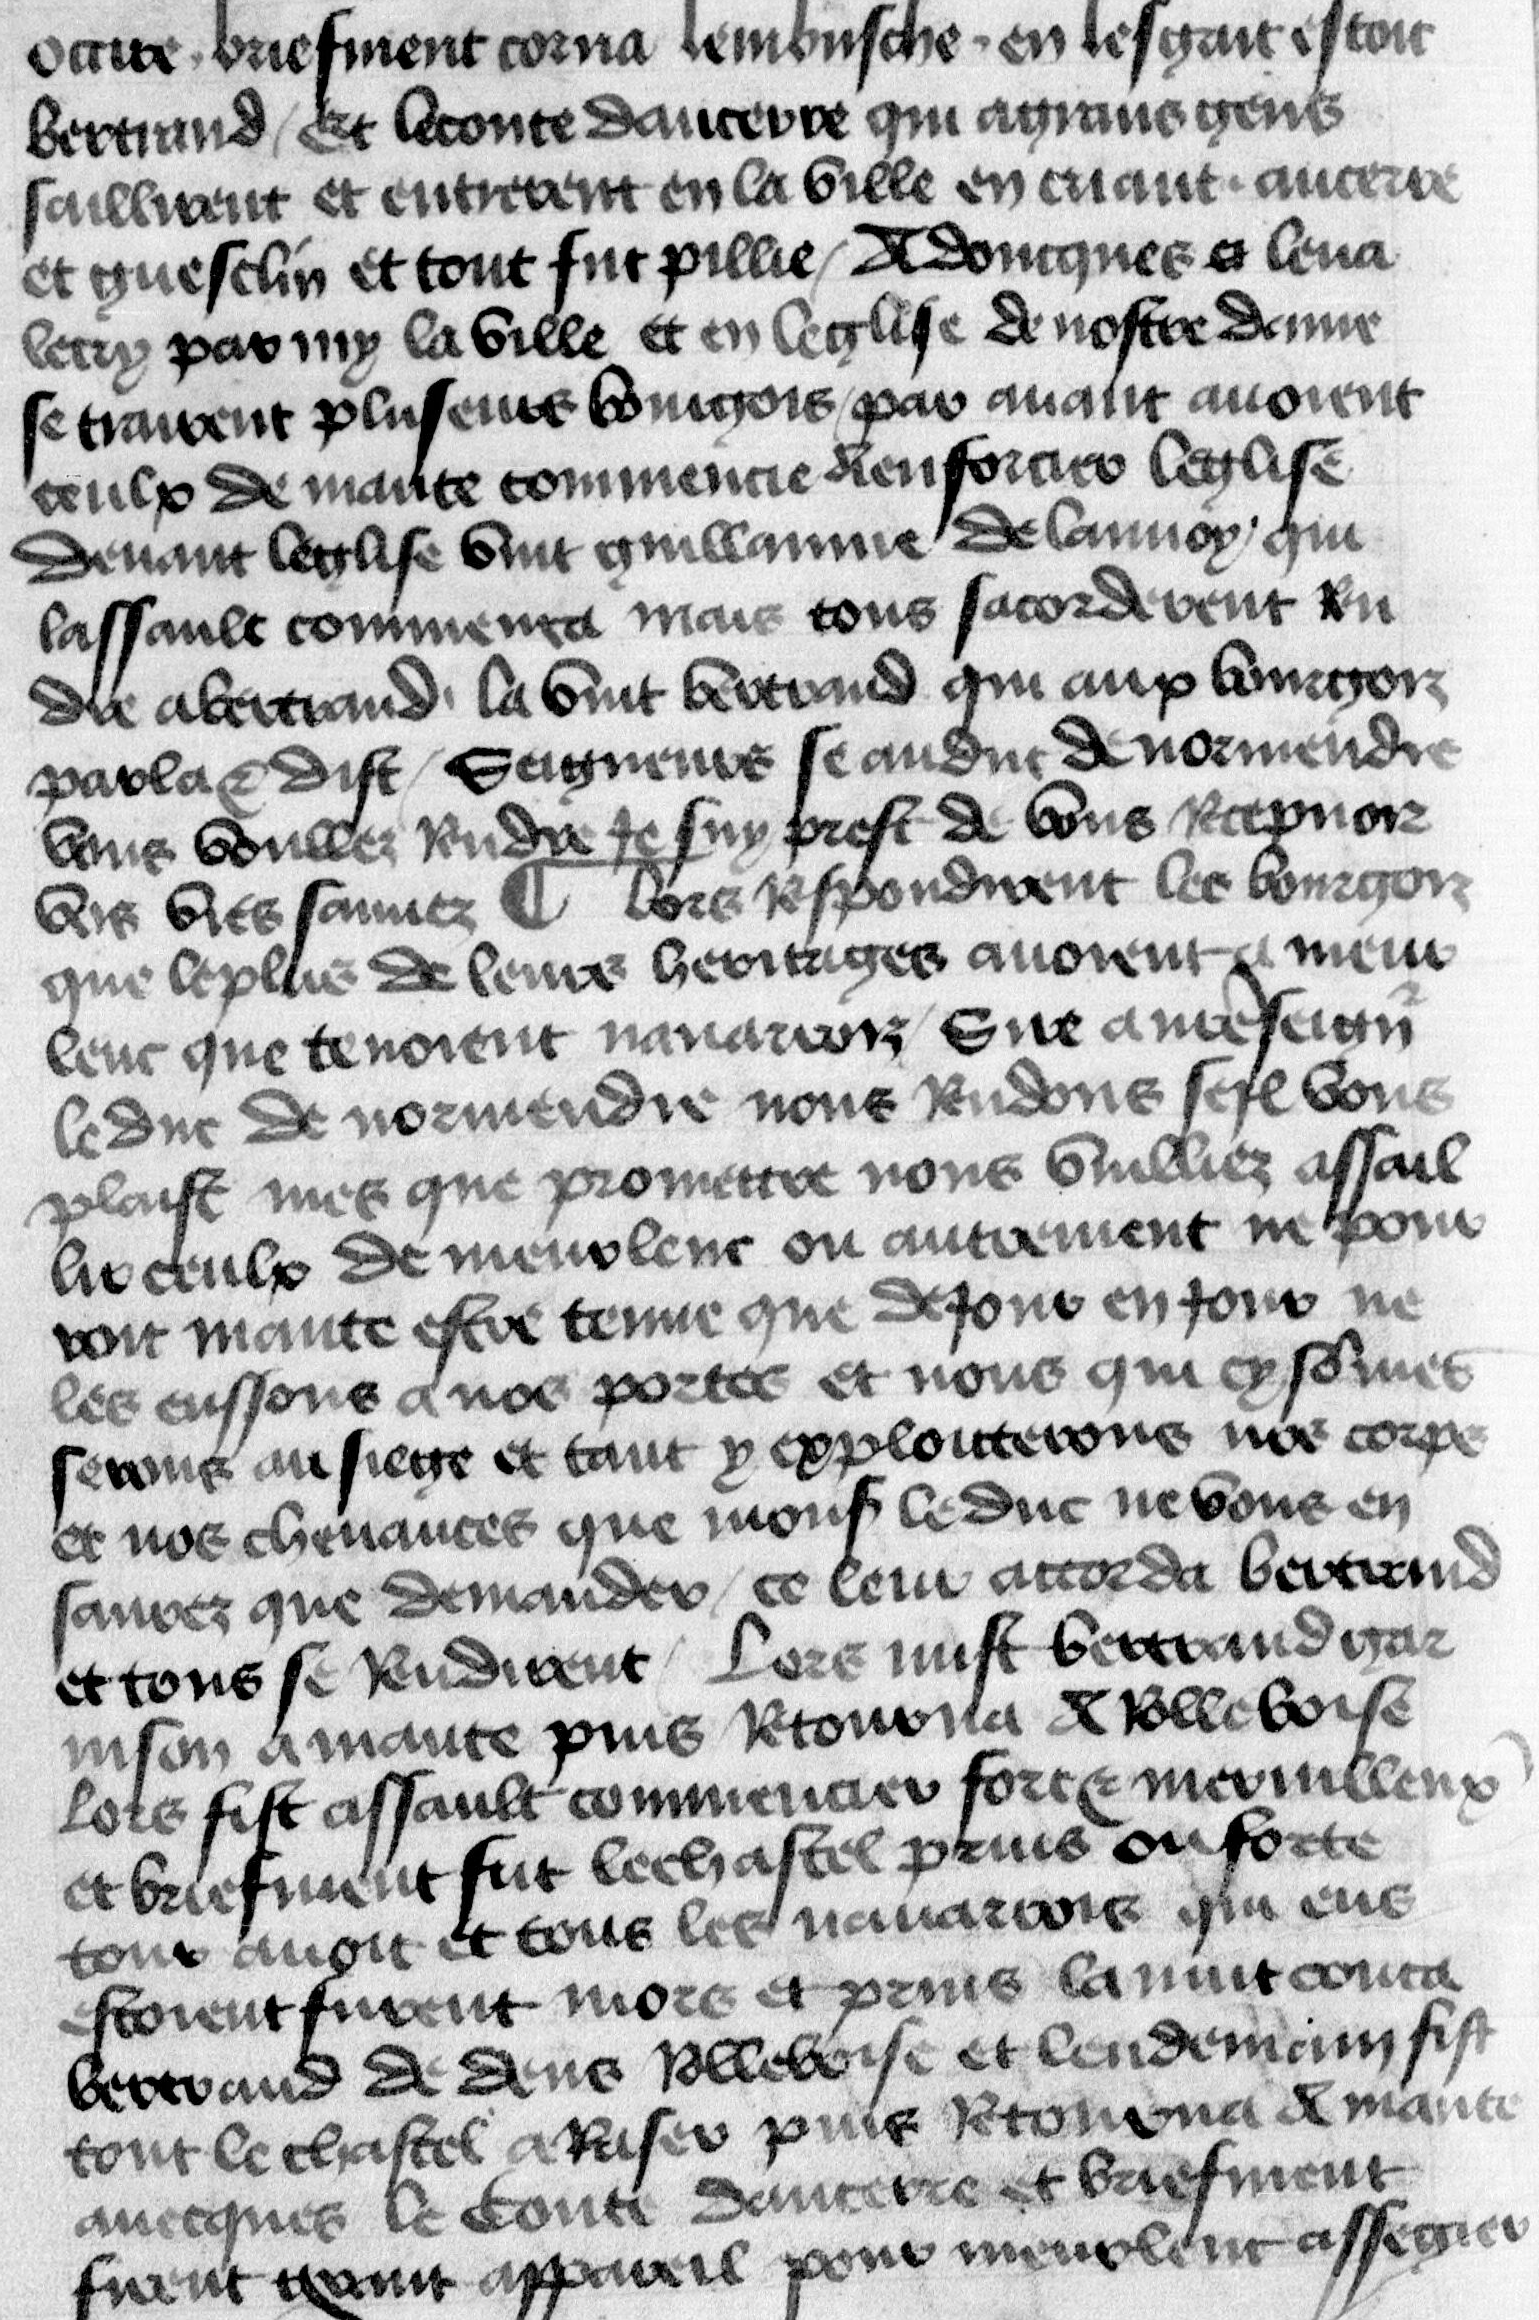 occire . briefment corna lembusche . en lesgait estoit
bertrand / Et leconte daucerre qui agrans gens
saillirent et entrerent en la ville en criant . aucerre
et guesclin et tout fut pillie / Adoncques a leua
lecry par my la ville et en leglise de nostre dame
se trairent pluseurs bourgois / par auant auoient
ceulx de mante commencie denforcier leglise
deuant leglise vint guillaume delannoy qui
lassault commenca mais tous sacorderent Ren
dre abertrand . la vint bertrand qui aux bourgois
parla & dist / Seigneurs se auduc de normendie
vous voullez Rendre Je suy prest de vous Recepuoir
vis vies sauuez ¶ Lors Respondirent les bourgois
que leplus de leurs heritages auoient a meur
lenc que tenoient nauarrois / Sire a nrẽ seignr
leduc de normendie nous Rendons seil vous
plaist mes que promettre nous vuilliez assail
lir ceulx de meurlenc ou autrement ne pour
roit mante estre tenue que deJour en Jour ne
les eussons a nos portes et nous qui cy sõmes
serons au siege et tant y exploiterons nos corps
et nos cheuances que mons leduc ne vous en
saurez que demander / ce leur accorda bertrand
et tous se Rendirent / Lors mist bertrand gar
nison a mante puis Retourna A Rolleboise
Lors fist assault commencier fort & merueilleux
et briefment fut lechastel prins ou forte
tour auoit et tous les nauarrois qui ens
estoient furent mors et prins la nuit couca
bertrand de dens Rolleboise et lendemain fist
tout le chastel a Raser puis Retourna A mante
auecques le Conte daucerre et briefment
firent grant appareil pour meurlenc assegier